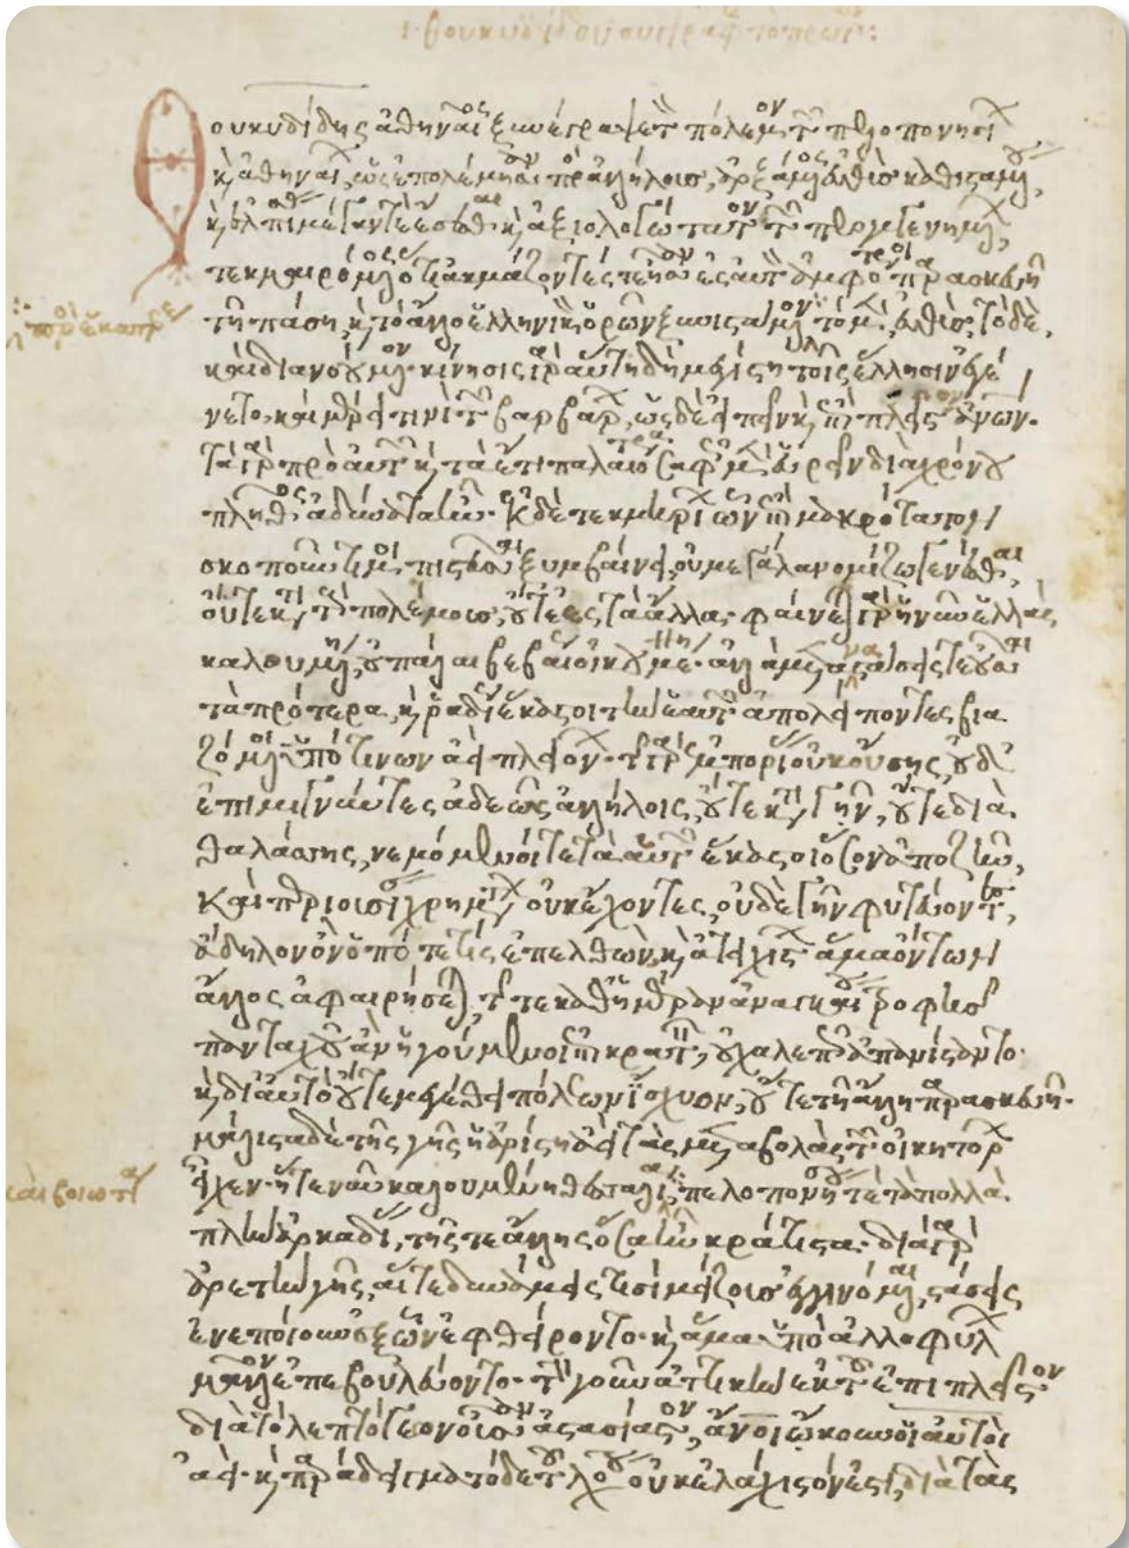 θουκυδίδου συγγραφῆς τὸ πρῶτον:
Θουκυδίδης ἀθηναῖος ξυνέγραψε τὸν πόλεμον τῶν πελοποννησίων
καὶ ἀθηναίων, ὡς ἐπολέμησαν πρὸς ἀλλήλους, ἀρξάμενος εὐθὺς καθισταμένου,
καὶ ἐλπίσας μέγαν τε ἔσεσθαι καὶ ἀξιολογώτατον τῶν προγεγενημένων,
τεκμαιρόμενος ὅτι ἀκμάζοντές τε ἦσαν ἐς αὐτὸν ἀμφότεροι παρασκευῇ
πρὸς ἑκατέρους
τῇ πάσῃ, καὶ τὸ ἄλλο ἑλληνικὸν ὁρῶν ξυνιστάμενον τὸ μὲν εὐθὺς, τὸ δὲ,
καὶ διανοούμενον. κίνησις γὰρ αὕτη δὴ μεγίστη τοῖς ἕλλησιν ἐγέ
νετο, καὶ μέρει τινὶ τῶν βαρβάρων, ὡς δὲ εἰπεῖν καὶ ἐπὶ πλεῖστον ἀνθρώπων.
τὰ γὰρ πρὸ αὐτῶν καὶ τὰ ἔτι παλαιότερα σαφῶς μὲν εὑρεῖν διὰ χρόνου
πλῆθος ἀδύνατα ἦν. ἐκ δὲ τεκμηρίων ὧν ἐπὶ μακρότατον
σκοποῦντί μοι πιστεῦσαι ξυμβαίνει, οὐ μεγάλα νομίζω γενέσθαι,
οὔτε κατὰ τοὺς πολέμους, οὔτε ἐς τὰ ἄλλα. φαίνεται γὰρ ἡ νῦν ἑλλὰς
καλουμένη, οὐ πάλαι βεβαίως οἰκουμένη. ἀλλὰ μεταναστάσεις τε οὖσαι
τὰ πρότερα, καὶ ῥαδίως ἕκαστοι τὴν ἑαυτῶν ἀπολείποντες βια
ζόμενοι ὑπό τινων ἀεὶ πλειόνων. τῆς γὰρ ἐμπορίας οὐκ οὔσης, οὐδ'
ἐπιμιγνύντες ἀδεῶς ἀλλήλοις, οὔτε κατὰ γῆν, οὔτε διὰ
θαλάσσης, νεμόμενοί τε τὰ αὑτῶν ἕκαστοι ὅσον ἀποζῆν,
καὶ περιουσίαν χρημάτων οὐκ ἔχοντες, οὐδὲ γῆν φυτεύοντες,
ἄδηλον ὂν ὁπότε τις ἐπελθὼν, καὶ ἀτειχίστων ἅμα ὄντων
ἄλλος ἀφαιρήσεται, τῆς τε καθ' ἡμέραν ἀναγκαίου τροφῆς
πανταχοῦ ἂν ἡγούμενοι ἐπικρατεῖν, οὐ χαλεπῶς ἀπανίσταντο.
καὶ δι' αὐτὸ οὔτε μεγέθει πόλεων ἴσχυον, οὔτε τῇ ἄλλῃ παρασκευῇ.
μάλιστα δὲ τῆς γῆς ἡ ἀρίστη ἀεὶ τὰς μεταβολὰς τῶν οἰκητόρων
καὶ βοιωτία
εἶχεν. ἥ τε νῦν καλουμένη θεσσαλία, πελοποννήσου τε τὰ πολλὰ
πλὴν ἀρκαδίας, τῆς τε ἄλλης ὅσα ἦν κράτιστα. διὰ γὰρ
ἀρετὴν γῆς, αἵ τε δυνάμεις τισὶ μείζους ἐγγινόμεναι, στάσεις
ἐνεποίουν ἐξ ὧν ἐφθείροντο. καὶ ἅμα ὑπὸ ἀλλοφύλων
μᾶλλον ἐπεβουλεύοντο. τὴν γοῦν ἀττικὴν ἐκ τοῦ ἐπὶ πλεῖστον
διὰ τὸ λεπτόγεων ἀστασίαστον οὖσαν, ἄνθρωποι ᾤκουν οἱ αὐτοὶ
ἀεί. καὶ παράδειγμα τόδε τοῦ λόγου οὐκ ἐλάχιστόν ἐστι, διὰ τὰς